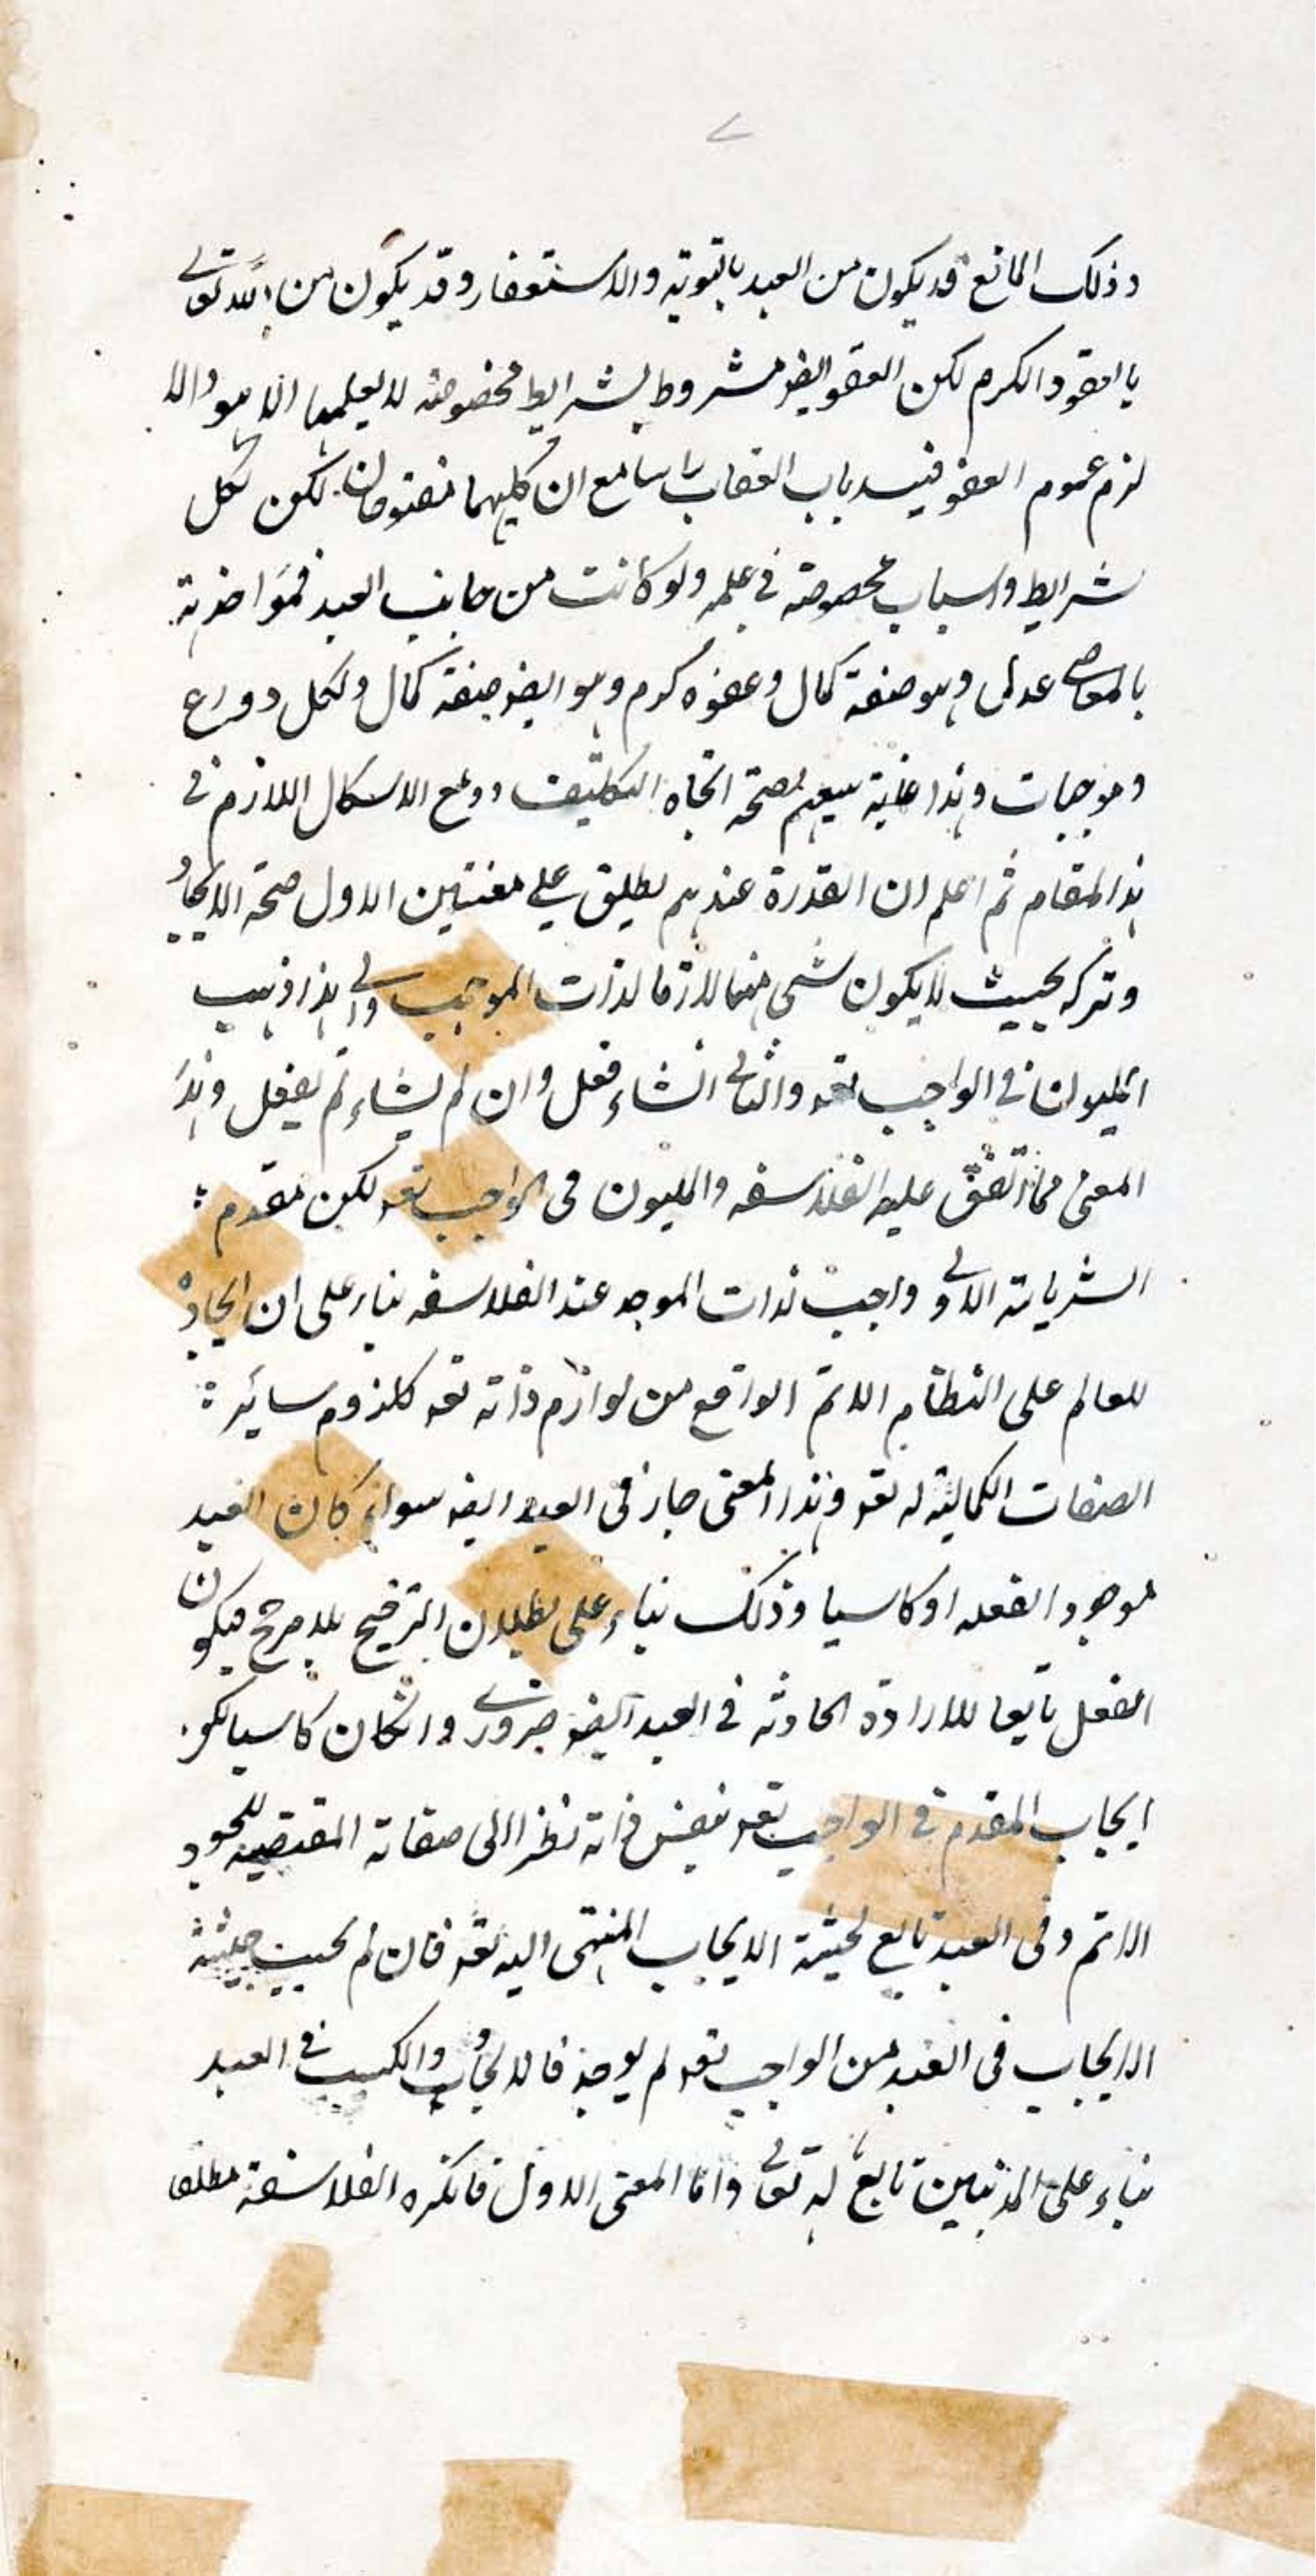 وذلك المانع قد يكون من العبد بالتوبة والاستغفار وقد يكون من الله تعالى
بالعفو والكرم لكن العفو ايضا مشروط بشرايط مخصوصة لا يعلمها الا هو والا
لزم عموم العفو فيسد باب العقاب راسا مع ان كليهما مفتوحان لكن لكل
شرايط واسباب مخصوصة في علمه ولو كانت من جانب العبد فمواخذته
بالمعاصي عدل وهو صفة كمال وعفوه كرم وهو ايضا صفة كمال ولكل دواع
وموجبات وهذا غاية سعيهم لصحة اتجاه التكليف ودفع الاشكال اللازم في
هذا المقام ثم اعلم ان القدرة عندهم يطلق على معنيين الاول صحة الايجاد
وتركه بحيث لا يكون شئ منهما لازما لذات الموجب والى هذا ذهب
المليون في الواجب تعه والثاني انشاء فعل وان لم يشاء لم يفعل وهذا
المعنى مما اتفق عليه الفلاسفه والمليون في الواجب تعه لكن مقدم
الشرطية الاولى واجب لذات الموجد عند الفلاسفه بناء على ان ايجاده
للعالم على النظام الاتم الواقع من لوازم ذاته تعه كلزوم سائر
الصفات الكمالية له تعه وهذا المعنى جاز في العبد ايضا سواء كان العبد
موجد الفعله او كاسبا وذلك بناء على بطلان الترجيح بلا مرجح فيكون
الفعل تابعا للارادة الحادثه في العبد ايضا ضروري وانكان كاسبا لكن
ايجاب المقدم في الواجب تعه نفس ذاته نظرا الى صفاته المقتضيه للجود
الاتم وفي العبد تابع لحيثية الايجاب المنتهى اليه تعه فان لم يجب حيثية
الايجاب في العبد من الواجب تعه لم يوجد فالايجاب والكسب في العبد
بناء على المذهبين تابع له تعالى واما المعنى الاول فانكره الفلاسفة مطلقا